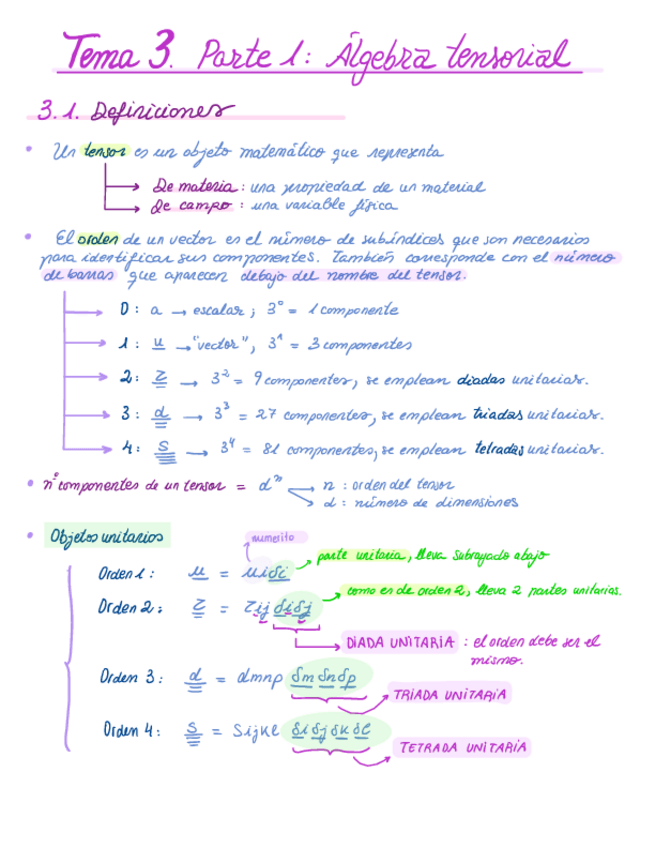 Tema 3. Parte 1: Álgebra tensorial
3.1. Definiciones
• Un tensor es un objeto matemático que representa
De materia: una propiedad de un material
De campo: una variable física
• El orden de un vector es el número de subíndices que son necesarios
para identificar sus componentes. También corresponde con el número
de barras que aparecen debajo del nombre del tensor.
0: a → escalar; 3⁰ = 1 componente
1: u → "vector", 3¹ = 3 componentes
2: τ → 3² = 9 componentes, se emplean díadas unitarias.
3: d → 3³ = 27 componentes, se emplean tríadas unitarias.
4: S → 3⁴ = 81 componentes, se emplean tetradas unitarias.
• nº componentes de un tensor = dⁿ → n: orden del tensor
d: número de dimensiones
• Objetos unitarios
numerito
parte unitaria, lleva subrayado abajo
Orden 1: u = ui δi
como es de orden 2, lleva 2 partes unitarias.
Orden 2: τ = τij δi δj
DIADA UNITARIA: el orden debe ser el
mismo.
Orden 3: d = dmnp δm δn δp
TRIADA UNITARIA
Orden 4: S = Sijkl δi δj δk δl
TETRADA UNITARIA